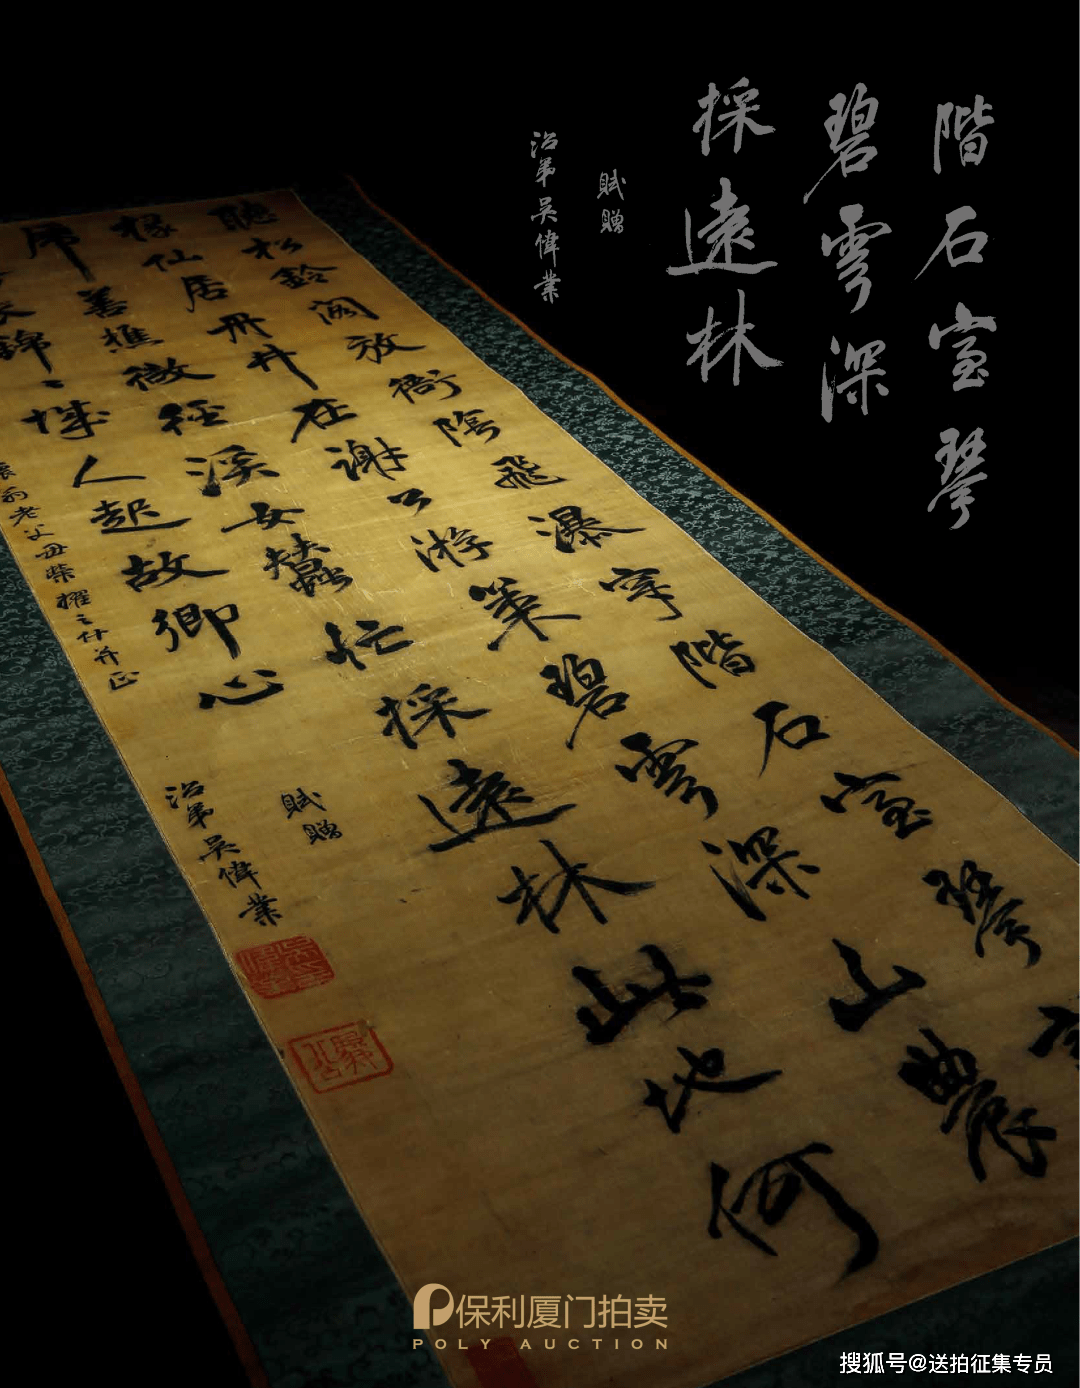 階石室琴
碧雲深
採遠林
賦贈
治弟吳偉業
聽松鈴閣放衙陰飛瀑穿階石室琴
椽仙居丹井在謝公游策碧雲深山農
虎善樵微徑溪女蠶忙採遠林此地何
衣錦城人起故鄉心
翁老父母榮擢之什并正
賦贈
治弟吳偉業
保利厦门拍卖
POLY AUCTION
搜狐号@送拍征集专员